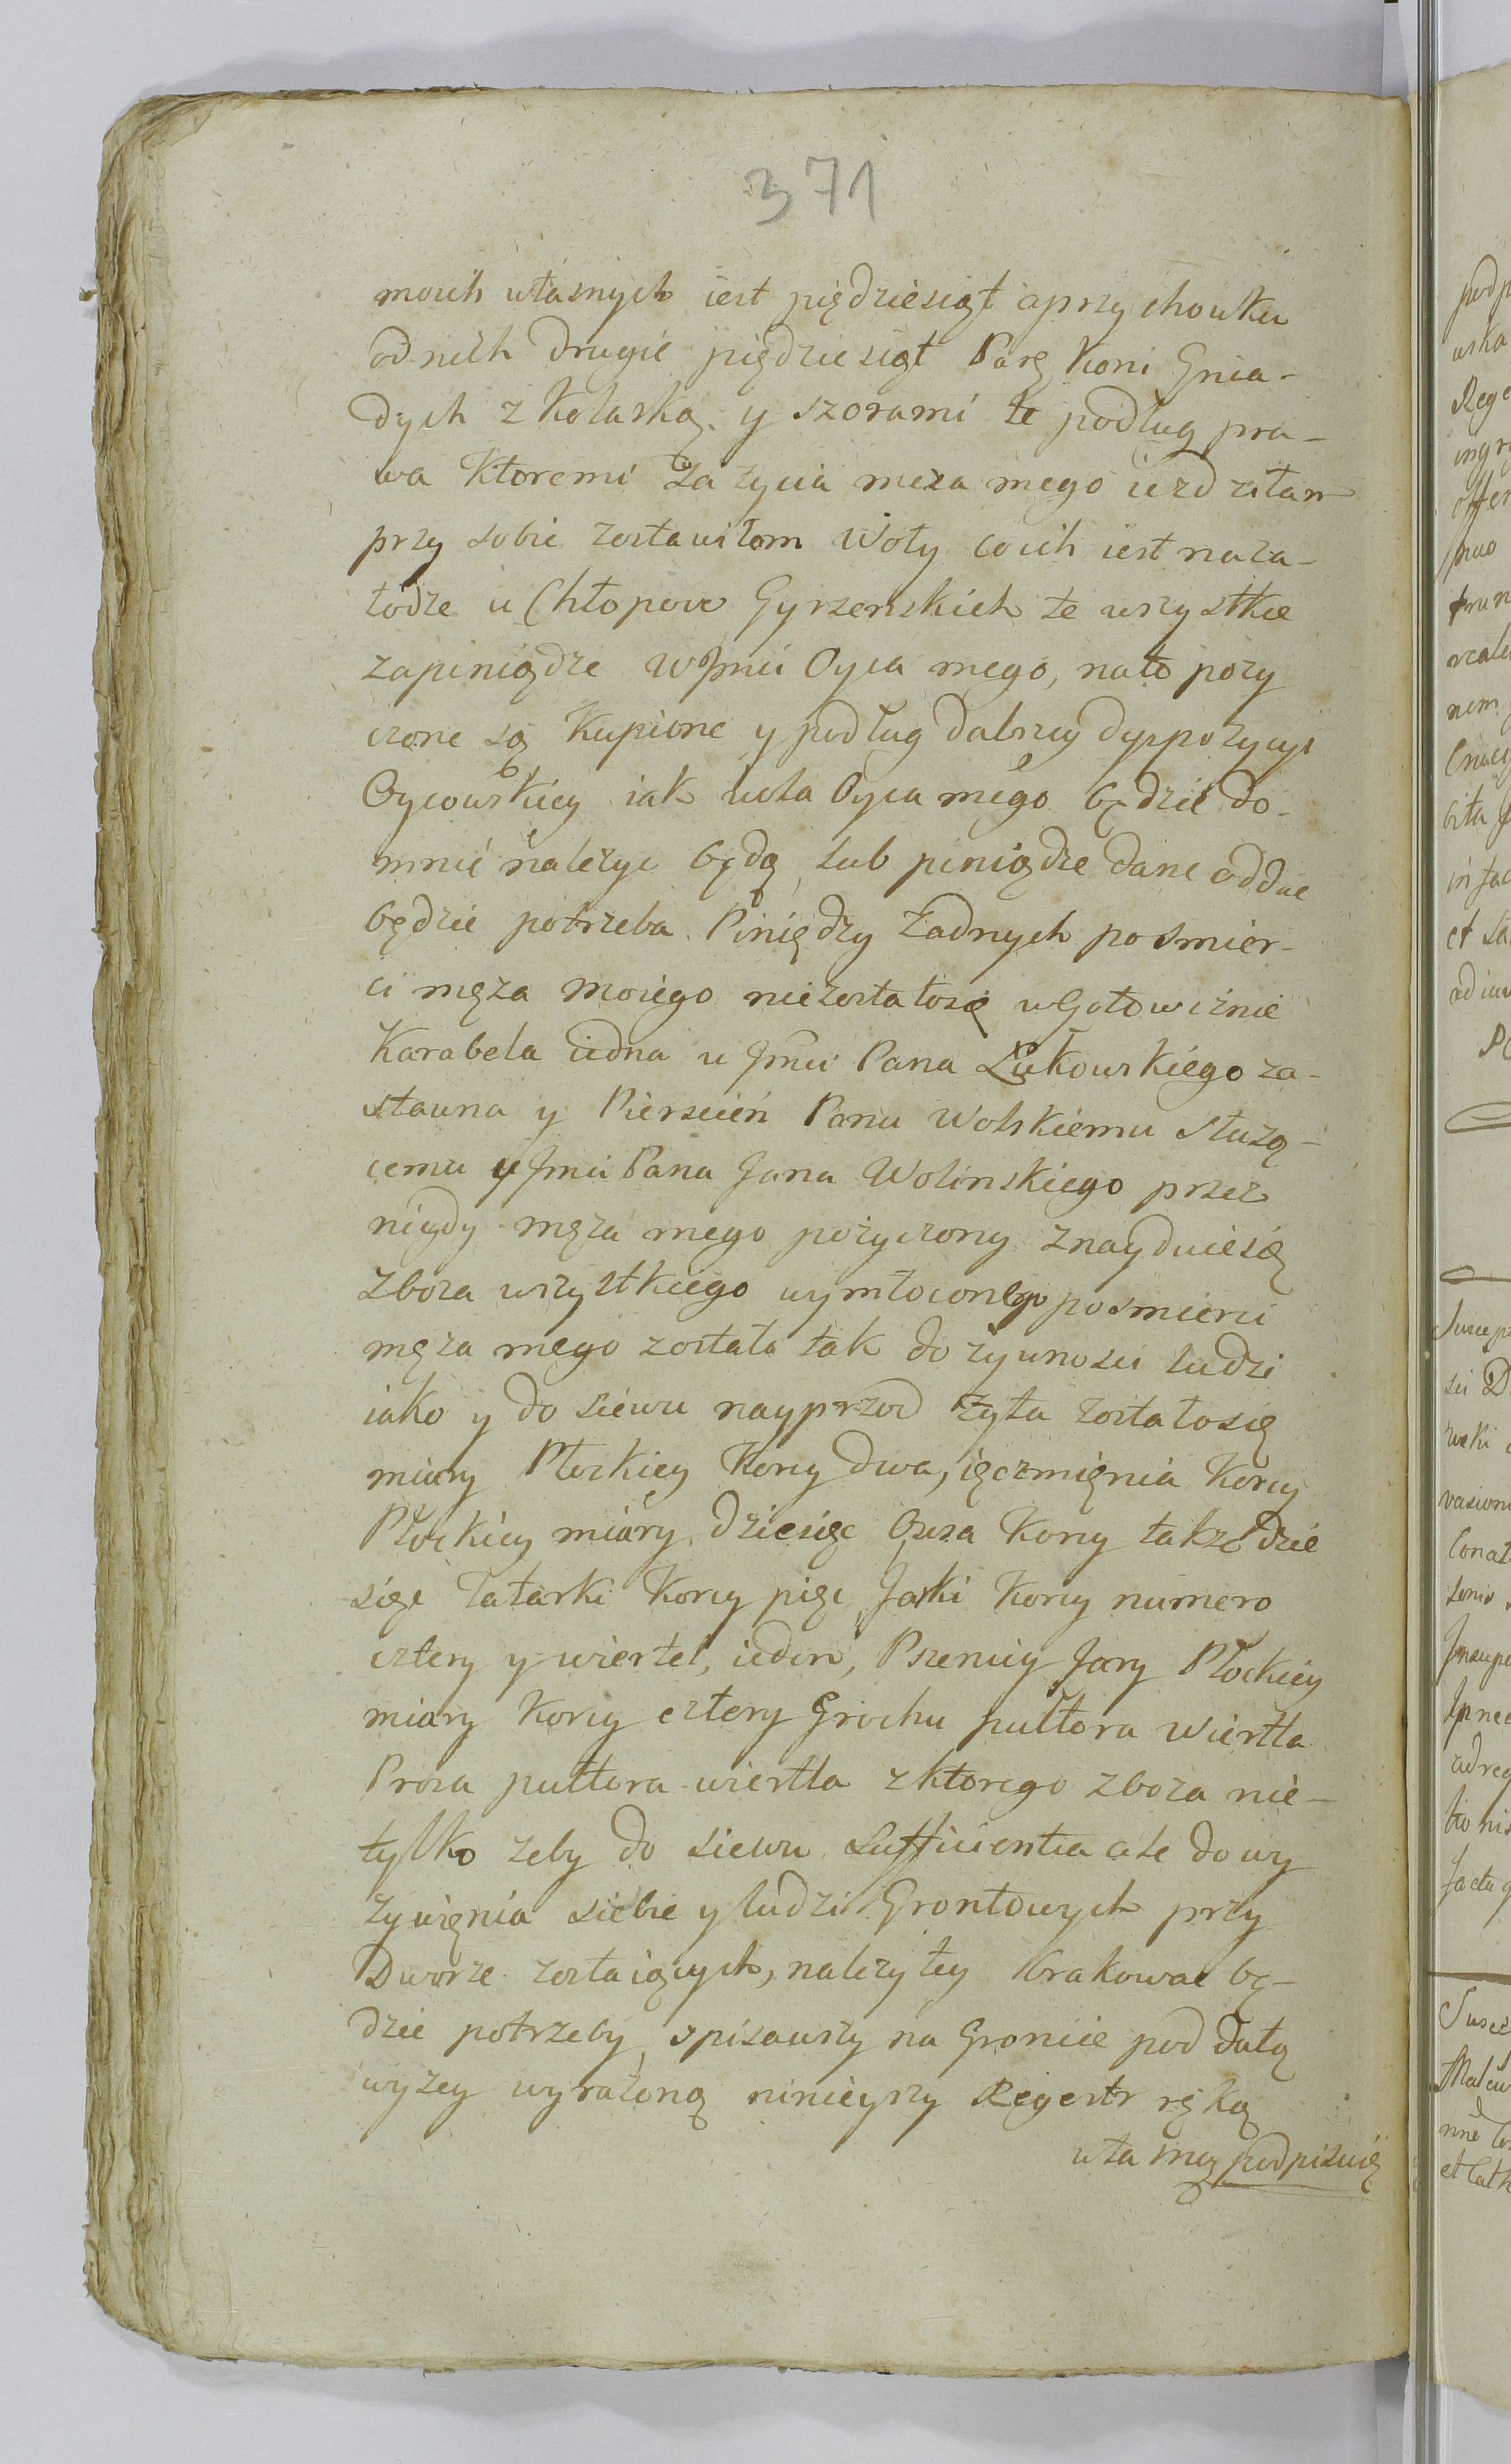 371
moich własnych iest piędziesiąt aprzychowku
odnich drugie piędziesiąt Parę Koni Gnia-
dych z Kolaską y szorami te podług pra-
wa Ktoremi Za zycia meza mego iezdziłam
przy sobie zostawiłom Woły co ich iest na za-
łodze u Chłopow Gyrzenskich te wszystkie
zapiniądze WJmci Oyca mego, nato pozy
czone są Kupione y podług dalszey dyspozycyi
Oycowskiey iak wola Oyca mego będzie do-
mnie nalezyc będą, lub piniądze dane oddac
będzie potrzeba. Piniędzy Zadnych po smier-
ci męza moiego niezostałosię wGotowiznie
Karabela iedna u Jmci Pana Łukowskiego za-
stawna y Pierscień Panu Wolskiemu słuzą-
cemu u Jmci Pana Jana Wolinskiego przez
niegdy męza mego pozyczony znayduiesię
Zboza wszystkiego wymłoconego posmierci
męza mego została tak do zywnosci ludzi
iako y do siewu nayprzod zyta zostałosię
miary Płockiey Korcy dwa, ięczmięnia Korcy
Płockiey miary dziesięc Owsa Korcy takze dzie
sięc Tatarki Korcy pięc, Jarki Korcy numero
cztery y wiertel, ieden, Pszenicy Jary Płockiey
miary Korcy cztery Grochu pułtora Wiertla
Prosa pułtora wiertla z ktorego zboza nie-
tylko zeby do siewu Sufficientia ale do wy
zywięnia siebie y ludzi Grontowych przy
Dworze zostaiących, nalezytey brakowac bę-
dzie potrzeby, spisawszy na Groncie pod datą
wyzey wyrazoną ninieyszy Regestr ręką
własną podpisuię